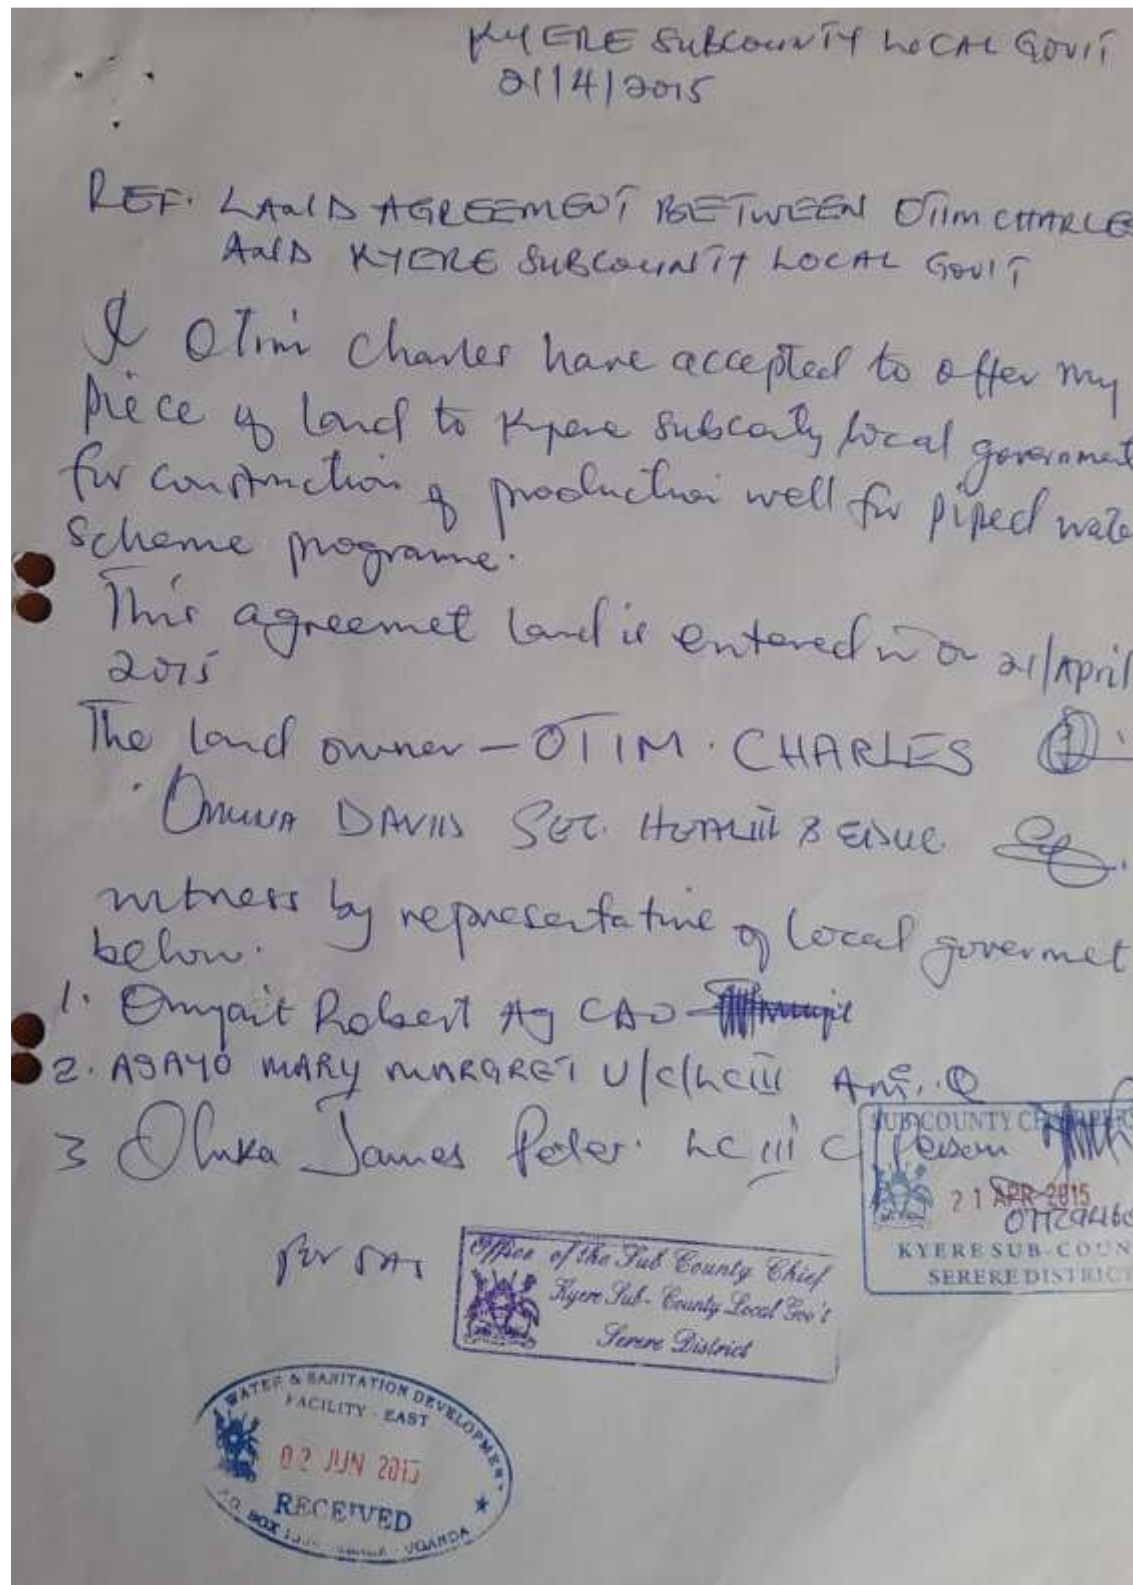 KYERE SUBCOUNTY LOCAL GOV'T
21/4/2015
REF: LAND AGREEMENT BETWEEN OTIM CHARLE
AND KYERE SUBCOUNTY LOCAL GOV'T
I Otim Charles have accepted to offer my
piece of land to Kyere subcounty local government
for construction of production well for piped wate
scheme programe.
This agreemet land is entered in on 21/April
2015
The land owner - OTIM. CHARLES
DAVIIS SEC. HEALTH & EDUC
witness by representative of local govermet
below.
1. Omyait Robert Ag CAO
2. ASAYO MARY MARGRET V/C/LCIII
3 Oluka James Peter. LC III C/Person
SUB COUNTY
21 APR 2015
KYERE SUB-COUN
SERERE DISTRIC
for
Office of the Sub County Chief
Kyere Sub-County Local Gov't
Serere District
WATER & SANITATION DEVELOPMENT
FACILITY - EAST
02 JUN 2015
RECEIVED
P.O. BOX UGANDA